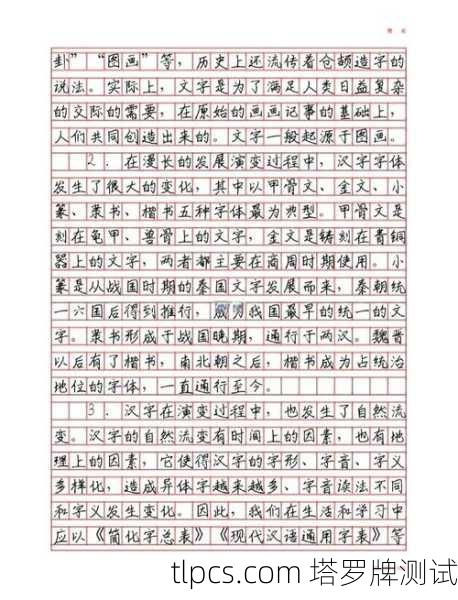 卦”“图画”等，历史上还流传着仓颉造字的
说法。实际上，文字是为了满足人类日益复杂
的交际的需要，在原始的画画记事的基础上，
人们共同创造出来的。文字一般起源于图画。
2．在漫长的发展演变过程中，汉字字体
发生了很大的变化，其中以甲骨文、金文、小
篆、隶书、楷书五种字体最为典型。甲骨文是
刻在龟甲、兽骨上的文字，金文是铸刻在青铜
器上的文字，两者都主要在商周时期使用。小
篆是从战国时期的秦国文字发展而来，秦朝统
一六国后得到推行，成为我国最早的统一的文
字。隶书形成于战国晚期，通行于两汉。魏晋
以后有了楷书，南北朝之后，楷书成为占统治
地位的字体，一直通行至今。
3．汉字在演变过程中，也发生了自然流
变。汉字的自然流变有时间上的因素，也有地
理上的因素，它使得汉字的字形、字音、字义
多样化，造成异体字越来越多、字音读法不同
和字义发生变化。因此，我们在生活和学习中
应以《简化字总表》《现代汉语通用字表》等
tlpcs.com 塔罗牌测试